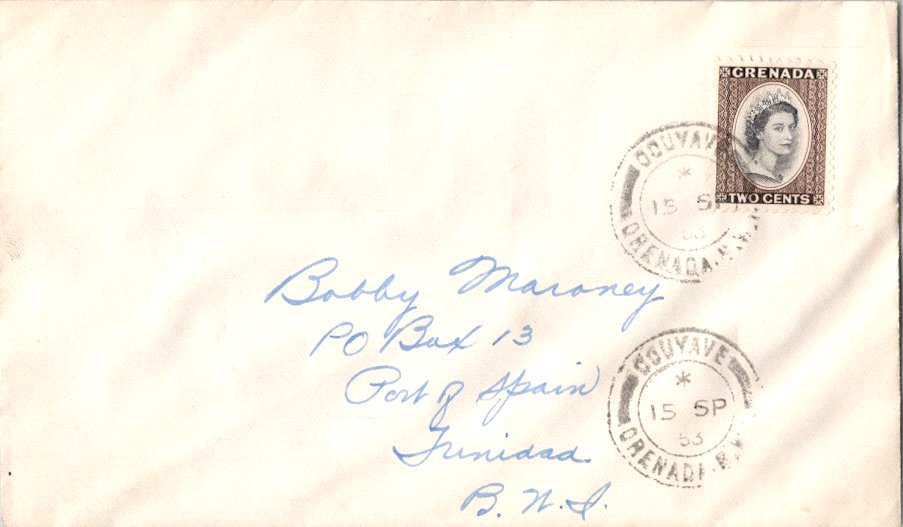 GRENADA
TWO CENTS
GOUYAVE
15 SP
53
GRENADA. B.W.I.
Bobby Maroney
PO Box 13
Port of Spain
Trinidad
B.W.I.
GOUYAVE
15 SP
53
GRENADA. B.W.